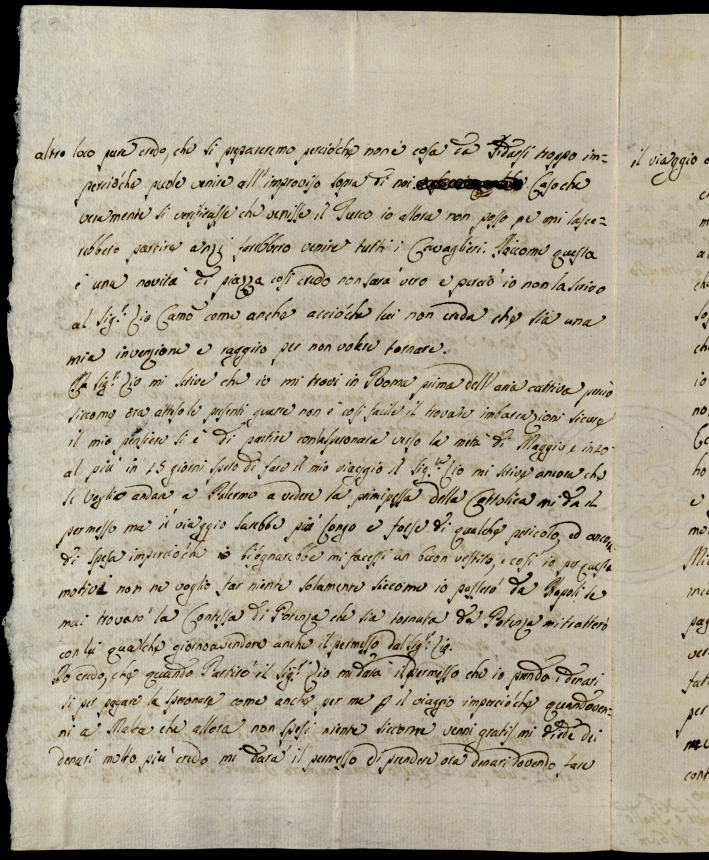 altro loco pure credo, che si prepareremo perciòche non è cosa da Fidarsi troppo im-
perciòche puole venire all'improviso sopra di noi Caso che
veramente si verificasse che venisse il Turco io allora non posso pe mi lasce-
rebbero partire anzi farebbero venire tutti i Cavaglieri. Siccome questa
è una novità di piazza così credo non sara' vero e perciò io non la scrivo
al Sig.r Zio Camô come anche acciòche lui non creda che sia una
mia invenzione e raggiro per non volere tornare.
Il Sig.r Zio mi scrive che io mi trovi in Roma prima dell'aria cattiva perciò
siccome ora attese le presenti guerre non è così facile il trovare imbarcazioni sicure
il mio pensiere si è di partire con la speronara verso la metà di Maggio e in 20
al più in 25 giorni spero di fare il mio viaggio il Sig.r Zio mi scrive ancora che
se voglio andare a Palermo a vedere la principessa della Cattolica mi da il
permesso ma il viaggio sarebbe più longo e forse di qualche pericolo, ed ancora
di spesa imperciòche bisognarebbe mi facessi un buon vestito, e così io per questi
motivi non ne voglio far niente solamente siccome io passerò da Napoli se
mai trovarò la Contessa di Potenza che sia tornata da Potenza mi tratterò
con lei qualche giorno avendone anche il permesso dal Sig.r Zio.
Io credo, che quando Partirò il Sig.r Zio mi darà il permesso che io prendo i denari
si per pagare la speronara come anche per me il viaggio imperciòche quando ven-
ni a Malta che allora non spesi niente siccome venni gratis mi diede dei
denari molto più credo mi darà il permesso di prendere ora denari dovendo fare
il viaggio